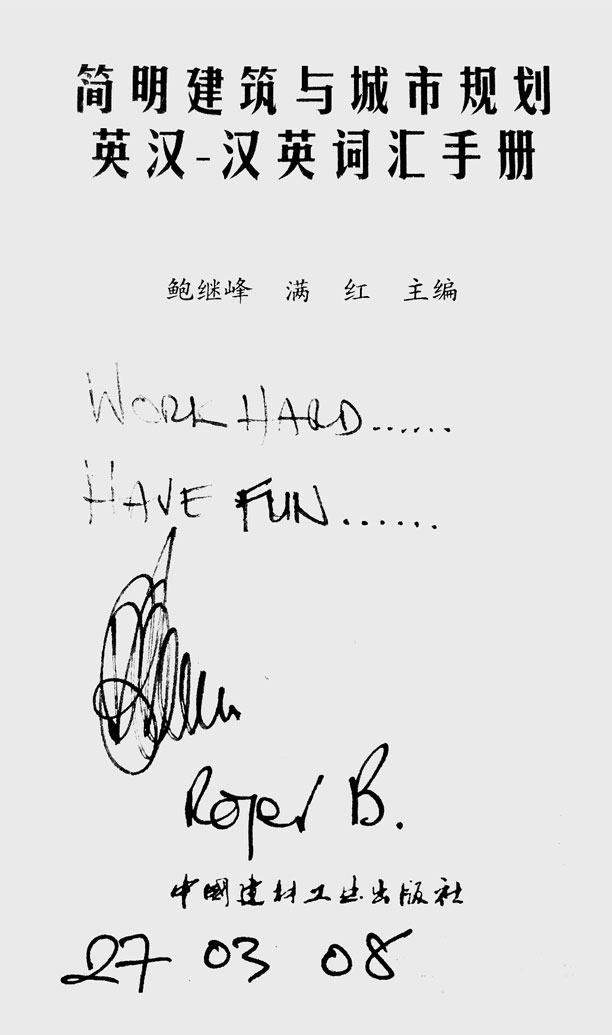 简明建筑与城市规划
英汉-汉英词汇手册
鲍继峰 满 红 主编
WORK HARD......
HAVE FUN......
Roger B.
中国建材工业出版社
27 03 08